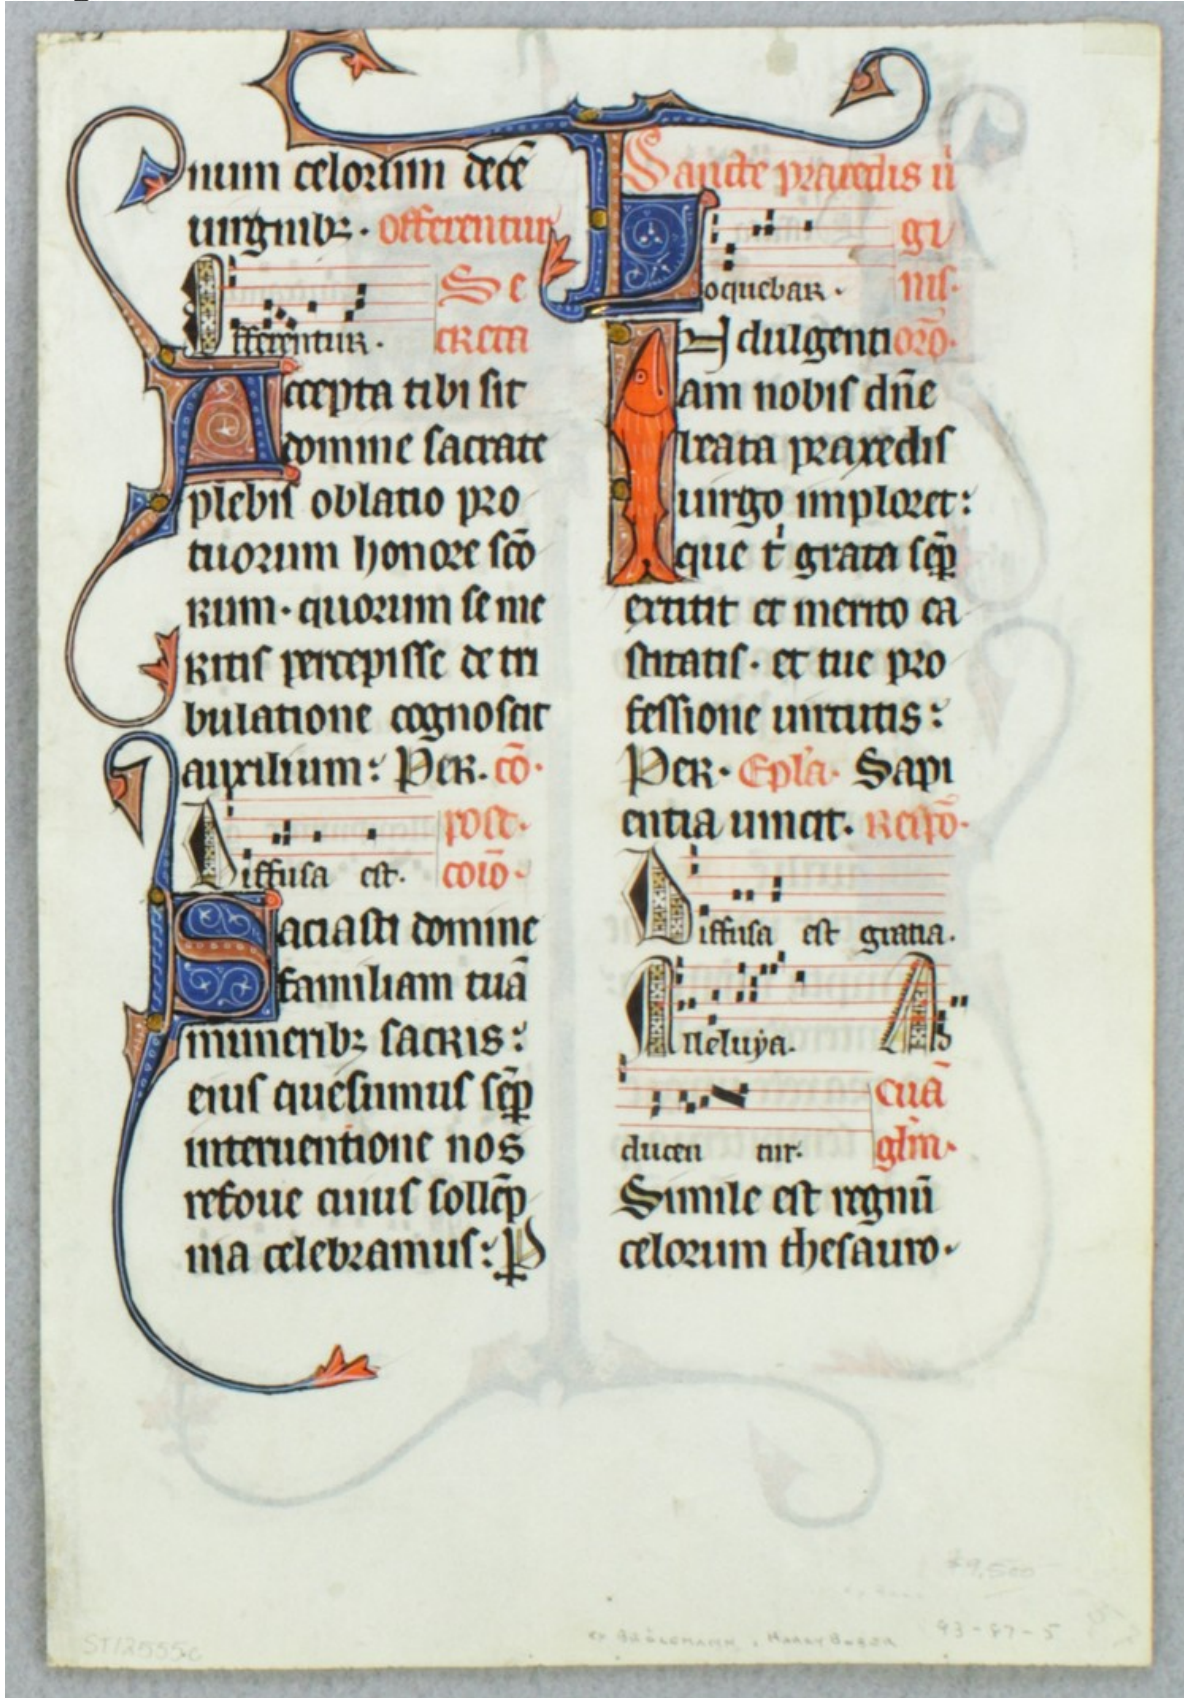 num celorum decē
uirginibꝫ · offerentur
Se
Offerentur · creta
Accepta tibi sit
domine sacrate
plebis oblatio pro
tuorum honore sco᷑
rum · quorum se me
ritis percepisse de tri
bulatione cognoscit
auxilium : Per · cō ·
post ·
Diffusa est · coīo ·
Saciasti domine
familiam tuā
muneribꝫ sacris :
eius quesumus sēp
interuentione nos
refoue cuius sollēp
nia celebramus : P
Sancte praxedis ui
gi
Loquebar · nis ·
Indulgenti orō ·
am nobis dn̄e
beata praxedis
uirgo imploret :
que t' grata sēp
extitit et merito ca
stitatis · et tue pro
fessione uirtutis :
Per · Epl'a · Sapi
entia uincit · Respō ·
Diffusa est gratia ·
Alleluya · Ad
cuā
ducen tur · glm̄ ·
Simile est regnū
celorum thesauro ·
$9,500
ST12555c
ex Brölemann, Harry Bober 93-87-5